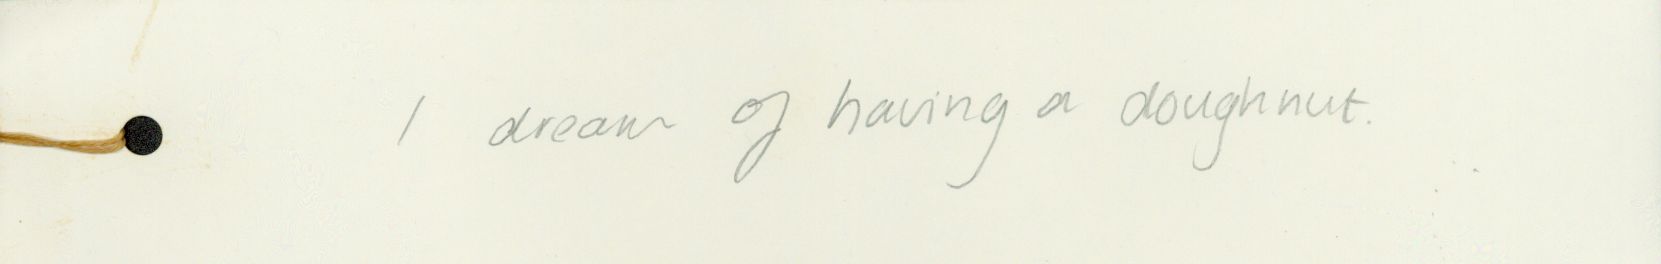 I dream of having a doughnut.